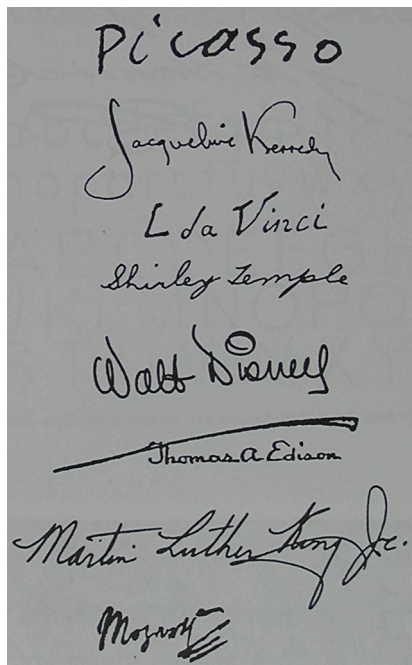 Picasso
Jacqueline Kennedy
L da Vinci
Shirley Temple
Walt Disney
Thomas A Edison
Martin Luther King Jr.
Mozart